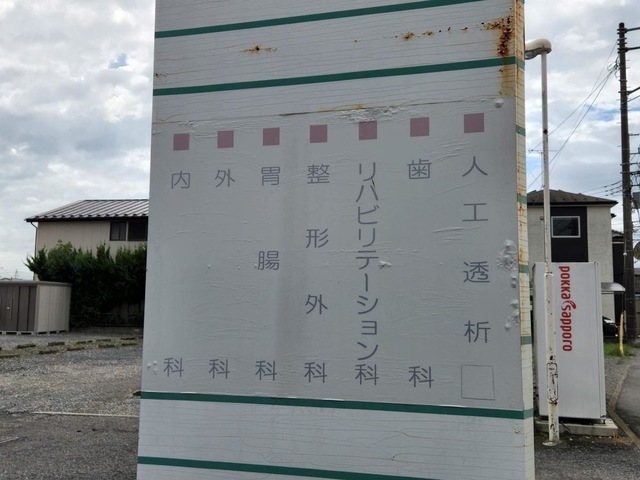 人工透析
歯科
リハビリテーション科
整形外科
胃腸科
外科
内科
pokka sapporo